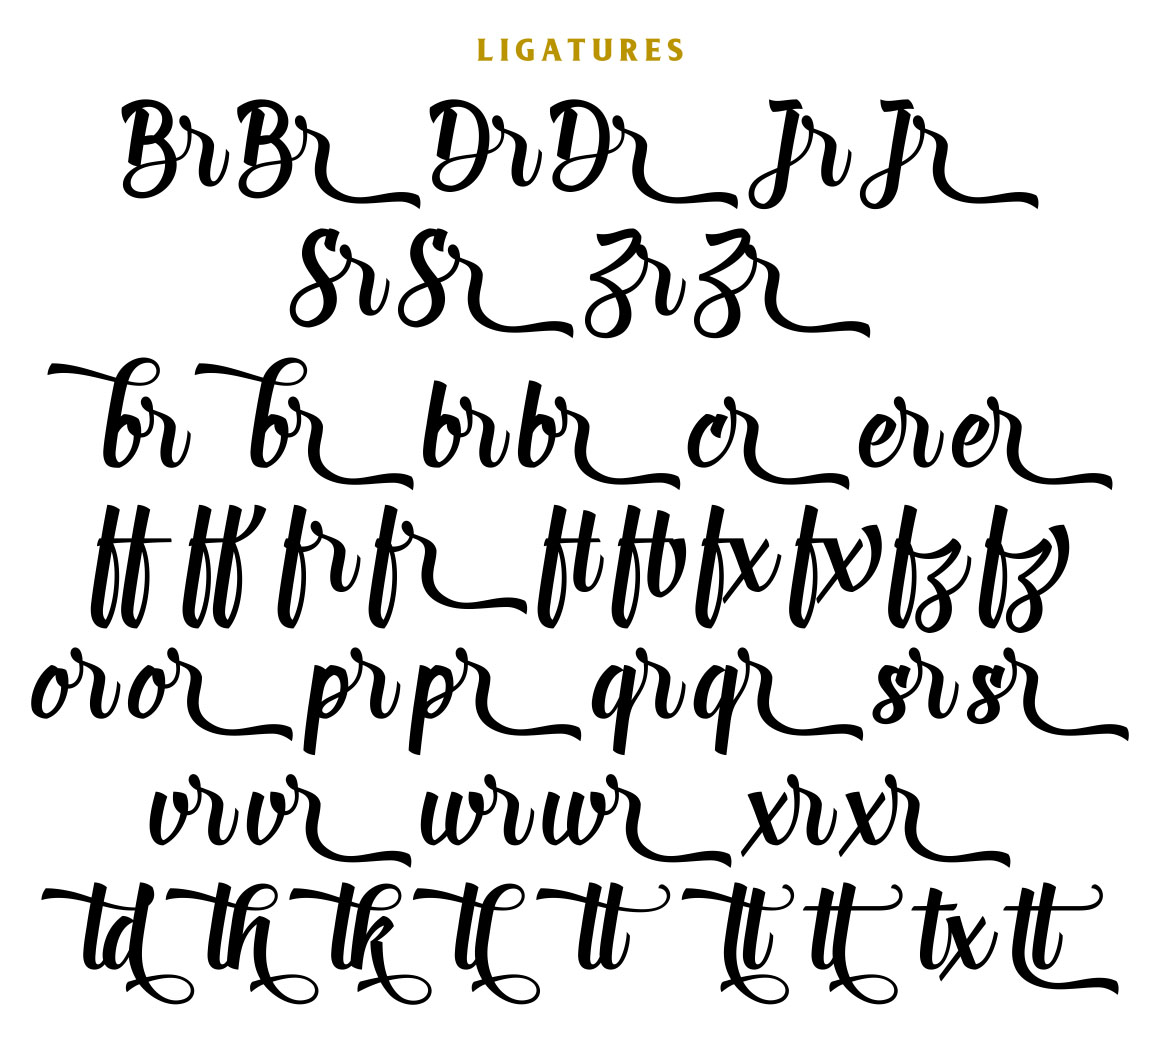 LIGATURES
Br Br Dr Dr Jr Jr
Sr Sr Zr Zr
br br br br cr er er
ff ff fr fr ft fb fx fx fz fz
or or pr pr qr qr sr sr
vr vr wr wr xr xr
td th tk tl tt tt tt tx tt